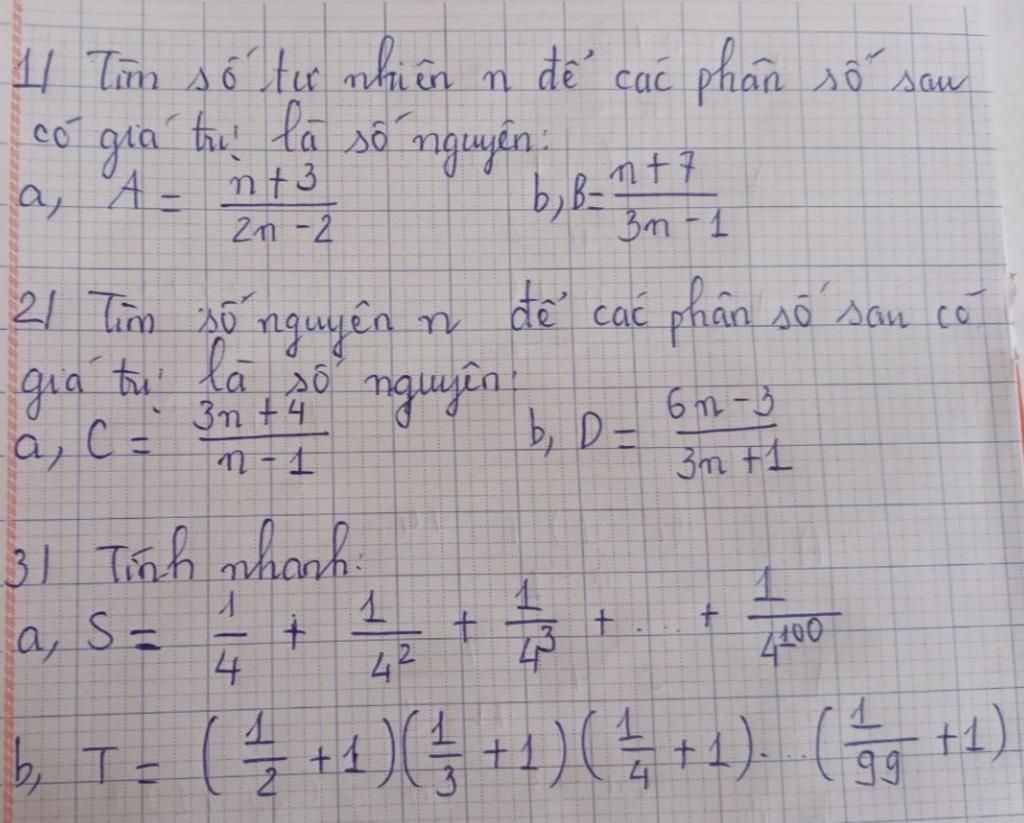 1) Tìm số tự nhiên n để các phân số sau
có giá trị là số nguyên:
a, A = (n + 3)/(2n - 2) b, B = (n + 7)/(3n - 1)
2) Tìm số nguyên n để các phân số sau có
giá trị là số nguyên:
a, C = (3n + 4)/(n - 1) b, D = (6n - 3)/(3n + 1)
3) Tính nhanh:
a, S = 1/4 + 1/4² + 1/4³ + ... + 1/4¹⁰⁰
b, T = (1/2 + 1)(1/3 + 1)(1/4 + 1)...(1/99 + 1)